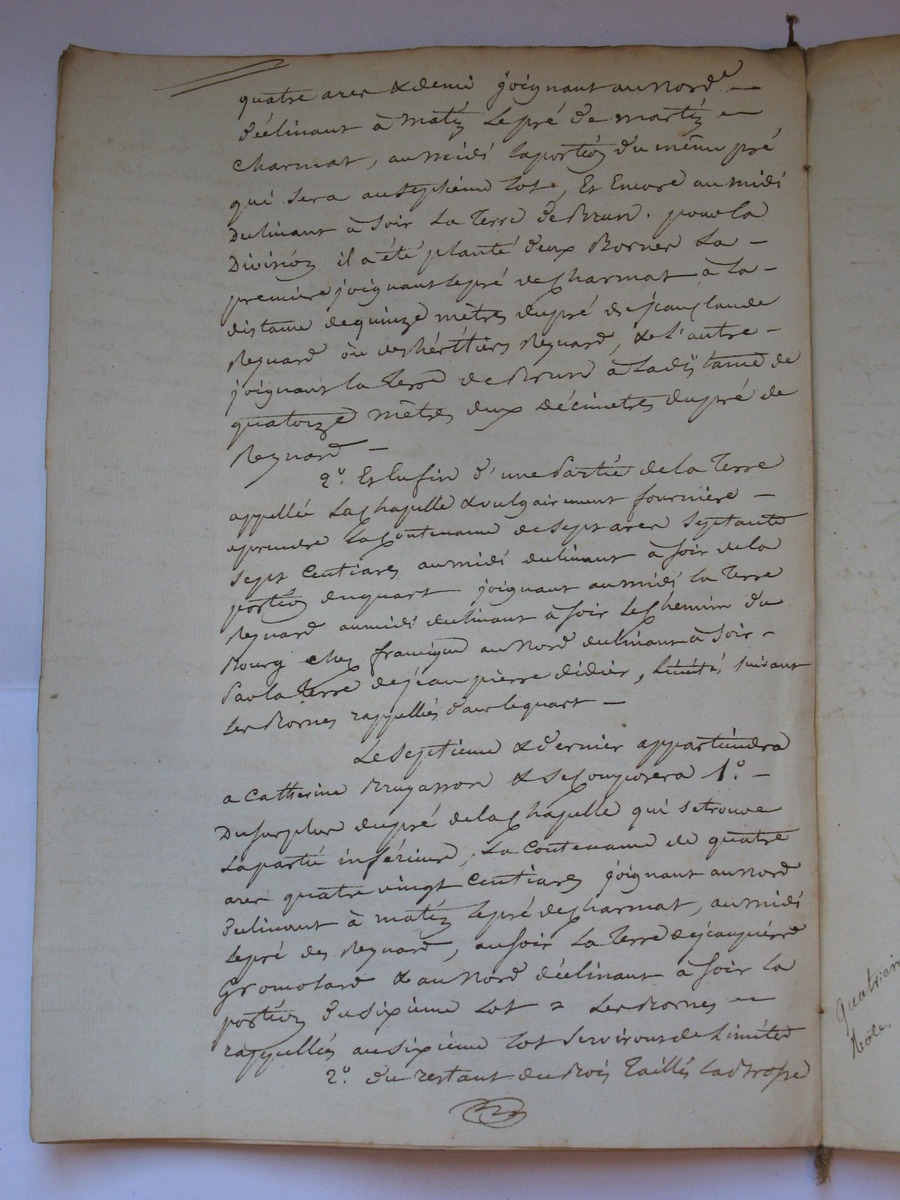 quatre ares & demi joignant au nord
déclinant à matin le pré de martin
Charmat, au midi la portion du même pré
qui sera au septième lot, Et Encore au midi
declinant à soir la Terre de Brun. pour la
Division il a été planté deux Bornes La
première joignant le pré de Charmat à la
distance de quinze mètres du pré de jean Claude
Reynard ou des héritiers Reynard, & l'autre
joignant la terre de Brun à la distance de
quatorze mètres deux décimetres du pré de
Reynard
2.° Et Enfin d'une Partie de la Terre
appellée La Chapelle & vulgairement fourniere
a prendre la Contenance de sept ares septante
sept Centiares au midi declinant à soir de la
portion du quart joignant au midi la Terre
Reynard au midi declinant à soir le Chemin du
Bourg chez au nord declinant à soir
Par la Terre de jean pierre didier, limité suivant
les Bornes rappellées dans le quart
Le septième & dernier appartiendra
a Catherine & se Composera 1.°
Du surplus du pré de la Chapelle qui se trouve
la partie inférieure, la Contenance de quatre
ares quatre vingt Centiares joignant au nord
declinant à matin le pré de Charmat, au midi
le pré des Reynard, au soir la Terre de jean pierre
Gromolard & au nord déclinant à soir la
portion du sixième lot Les Bornes
rappellées au sixième lot serviront de limites
2.° du restant du Bois Taillis
quatrieme
Role.